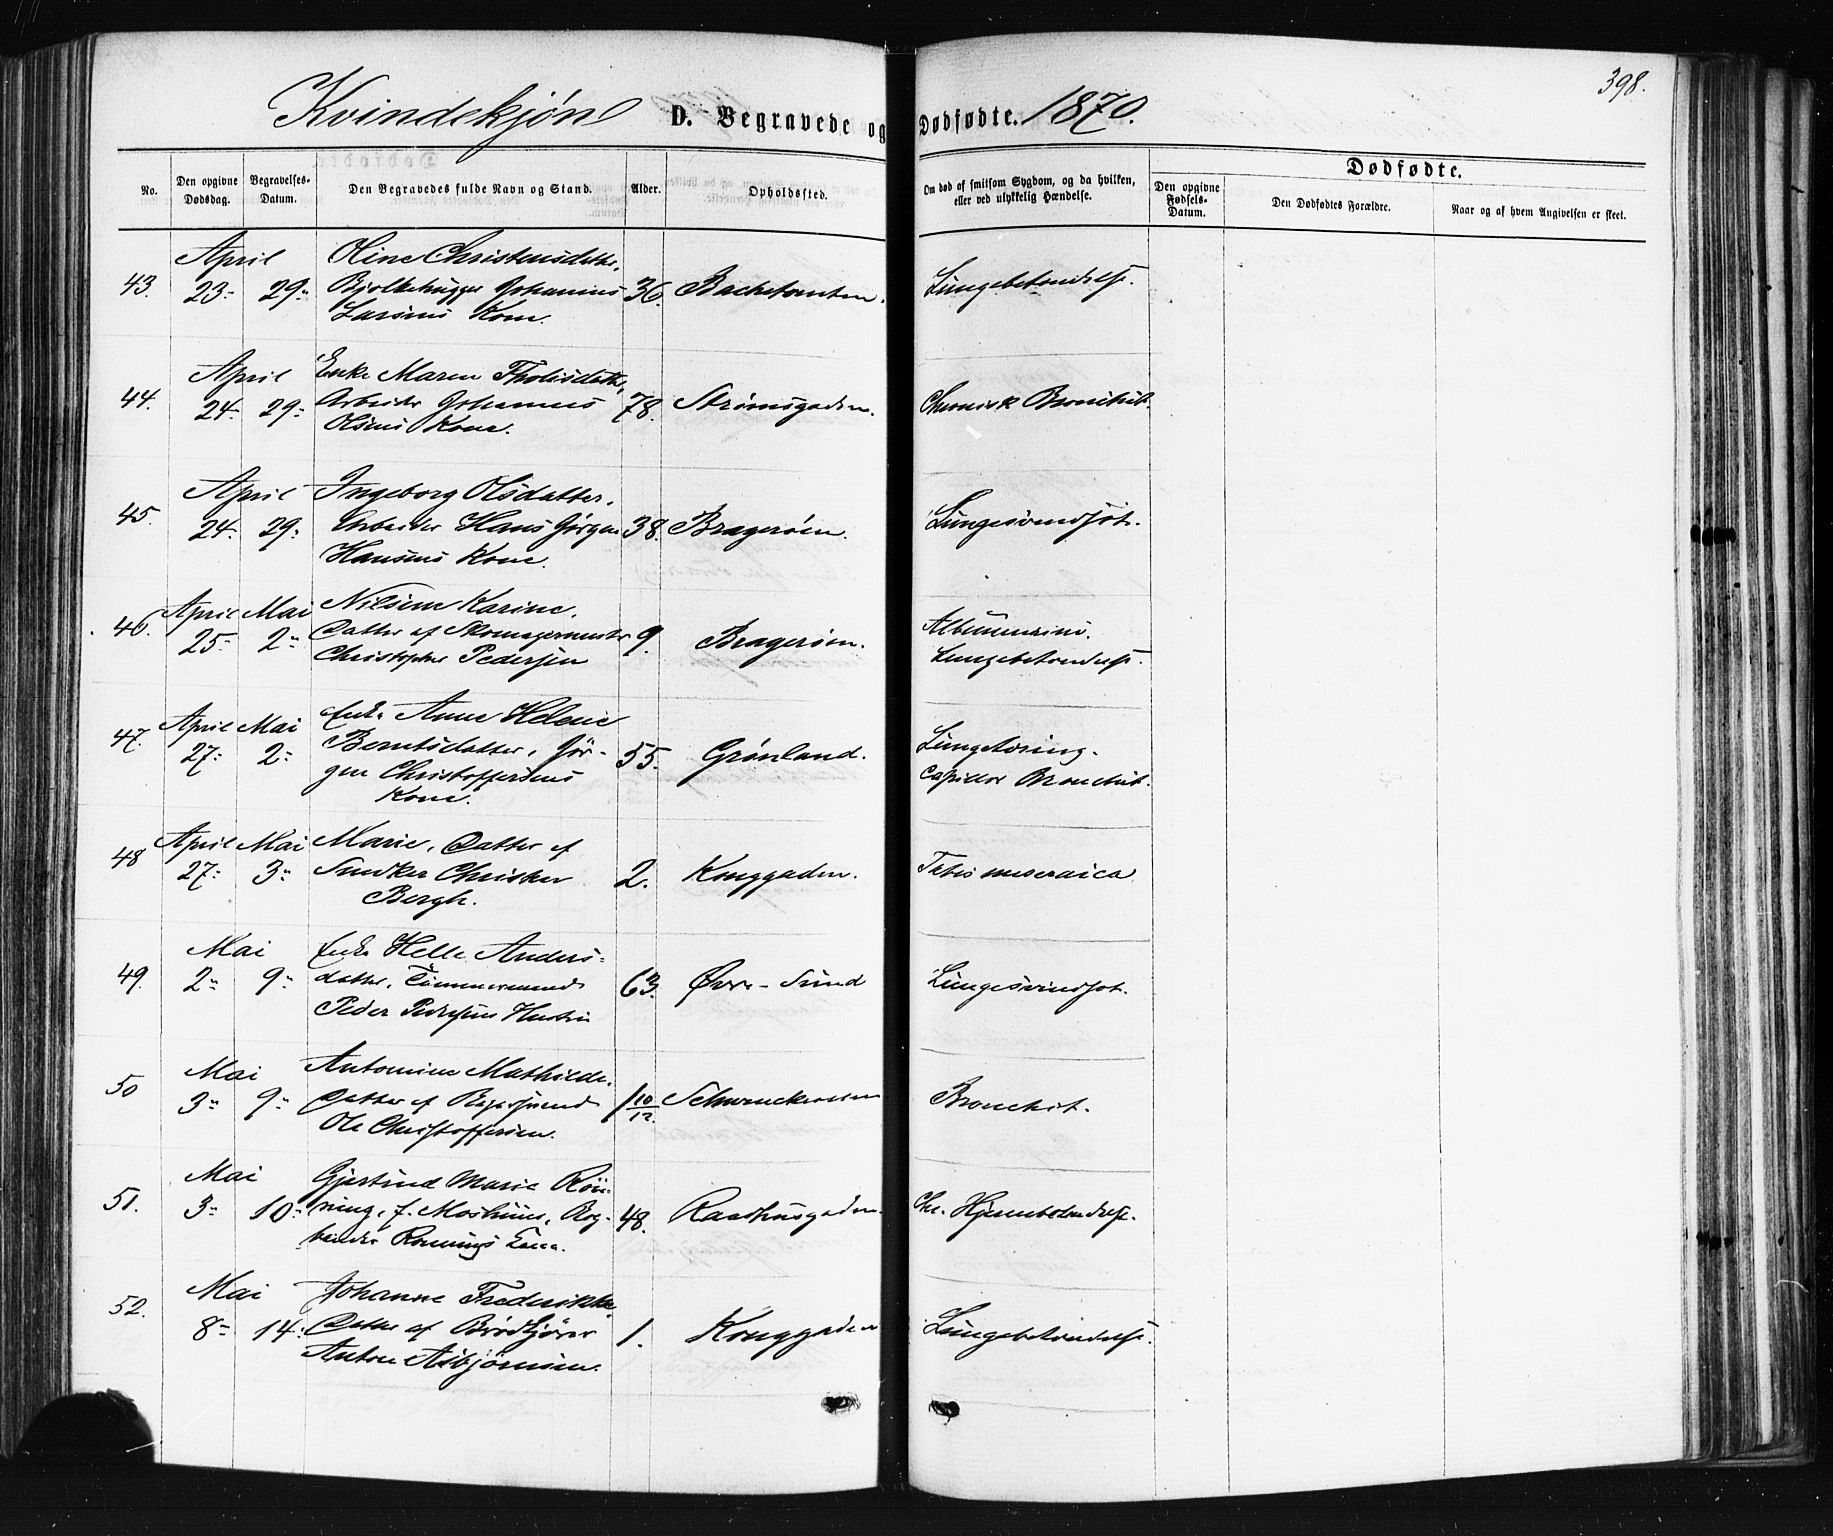 398.
Kvindekjøn D. Begravede og Dødfødte. 1870.
No. Den opgivne Dødsdag. Begravelses-Datum. Den Begravedes fulde Navn og Stand. Alder. Opholdssted. Om død af smitsom Sygdom, og da hvilken, eller ved ulykkelig Hændelse. Dødfødte. Den opgivne Fødsels-Datum. Den Dødfødtes Forældre. Naar og af hvem Angivelsen er skeet.
April Oline Christensdatter,
43. 23. 29. Bjelkehugger Johannes 36. Bachetomten. Lungebetændelse.
Larsens Kone.
April Enke Maren
44. 24. 29. Arbeider Johannes 78. Strømsgaden. Chronisk Bronchit.
Olsens Kone.
April Ingeborg Olsdatter,
45. 24. 29. Arbeider Hans Jørgen 38. Bragerøen. Lungesvindsot.
Hansens Kone.
April Mai Nilsine Karine,
46. 25. 2. Datter af Skomagermester 9. Bragerøen. Albuminurini.
Christopher Pedersen Lungebetændelse.
April Mai Enke Anne Helene
47. 27. 2. Berntsdatter, Jør- 55. Grønland. Lunge
gen Christoffersens Capillær Bronchit.
Kone.
April Mai Marie, Datter af
48 27. 3. Snedker Christian 2. Konggaden. Tabes meseraica
Bergh.
Mai Enke Helle Anders-
49. 2. 9. datter, Tømmermand 63. Øvre-Sund Lungesvindsot.
Peder Pedersens Hustru
Mai Antonine Mathilde,
50 3. 9. Datter af 1 10/12. Schwenckerssen Bronchit.
Ole Christoffersen.
Mai Gjertrud Marie Røn-
51. 3. 10. ning, f. Moshuus, Bog- 48. Raadhusgaden. Chr. Hjernebetændelse.
binder Rønnings
Mai Johanne Frederikke
52. 8. 14. Datter af Brødkjører 1. Konggaden Lungebetændelse.
Anton Asbjørnsen.